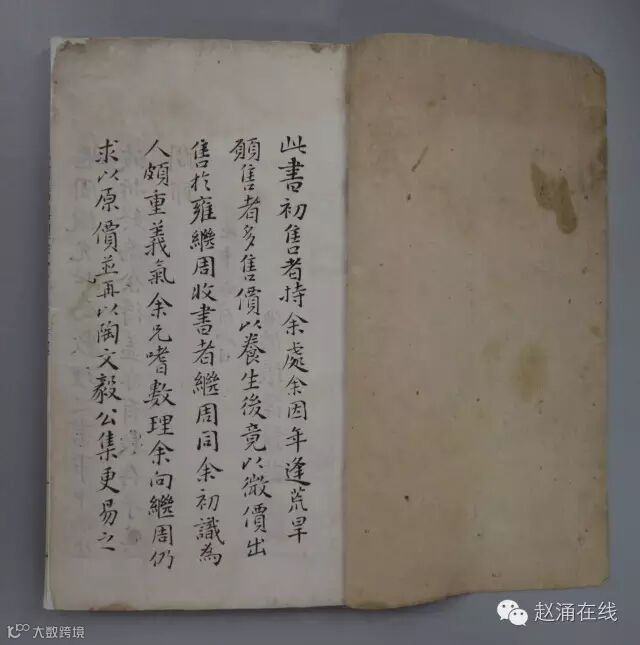 此書初售者持余處余因年逢荒旱
願售者多售價以養生後竟以微價出
售於雍繼周收書者繼周同余初識為
人頗重義氣余兄嗜數理余向繼周仍
求以原價並再以陶文毅公集更易之
赵涌在线
大数跨境